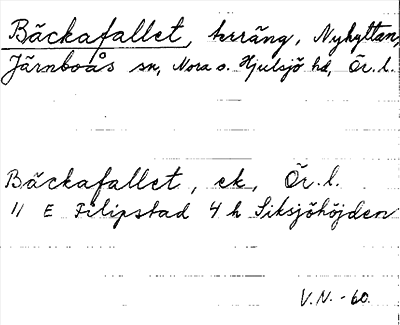 Bäckafallet, terräng, Nyhyttan,
Järnboås sn, Nora o. Hjulsjö hd, Ör. l.
Bäckafallet, ek, Ör. l.
11 E Filipstad 4 h Siksjöhöjden
V.N. -60.